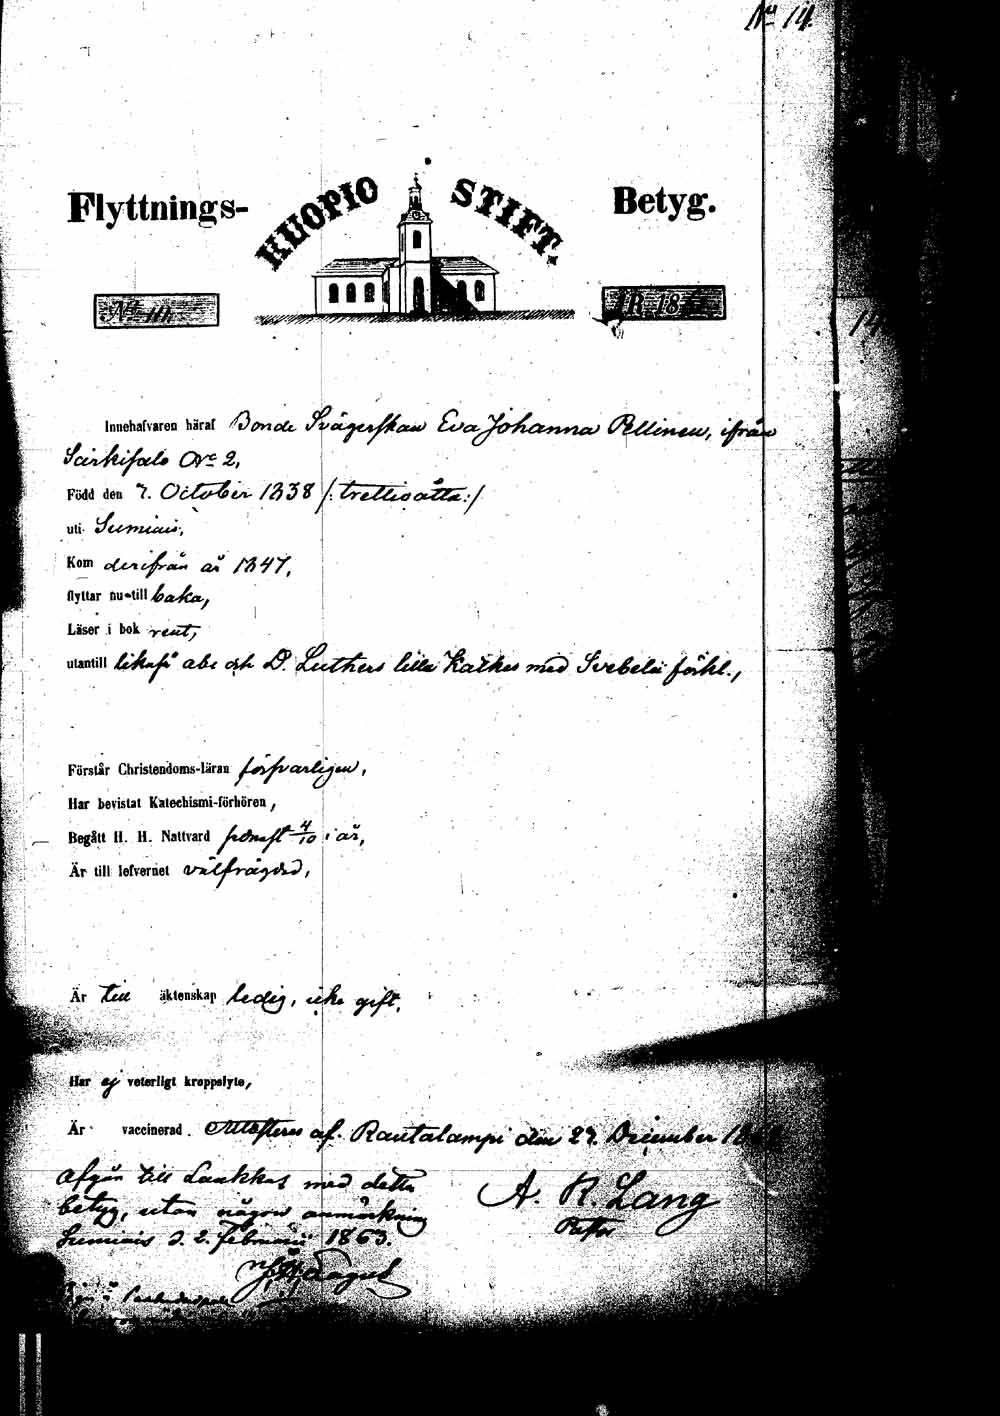 No 14.
Flyttnings- KUOPIO STIFT. Betyg.
No
ÅR 18
14
Innehafvaren häraf Bonde Svägerskan Eva Johanna Pellinen, ifrån
Särkisalo No 2,
Född den 7. October 1838 /: trettioåtta :/
uti Sumiais,
Kom derifrån år 1847,
flyttar nu till baka,
Läser i bok rent,
utantill likaså abc och D. Luthers lilla Katkes med Svebelii förkl.,
Förstår Christendoms-läran försvarligen,
Har bevistat Katechismi-förhören,
Begått H. H. Nattvard senast 4/10 i år,
Är till lefvernet välfrägdad,
Är till äktenskap ledig, icke gift.
Har ej veterligt kroppslyte,
Är vaccinerad. Attesteras af. Rautalampi den 27. December
A. R. Lang
Afgår till Laukkas med detta
betyg, utan någon anmärkning
Sumiais d. 2. Februarii 1863.